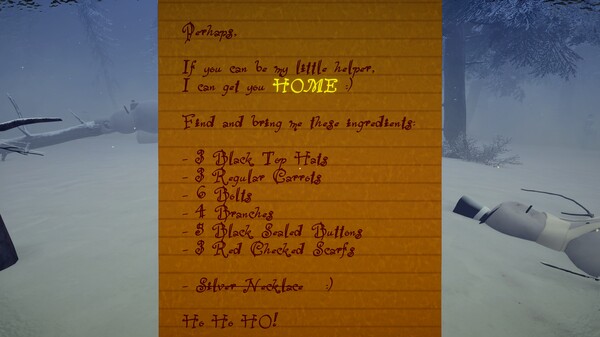 Perhaps,
If you can be my little helper,
I can get you HOME :)
Find and bring me these ingredients:
- 3 Black Top Hats
- 3 Regular Carrots
- 6 Bolts
- 4 Branches
- 5 Black Sealed Buttons
- 3 Red Checked Scarfs
- Silver Necklace :)
Ho Ho HO!